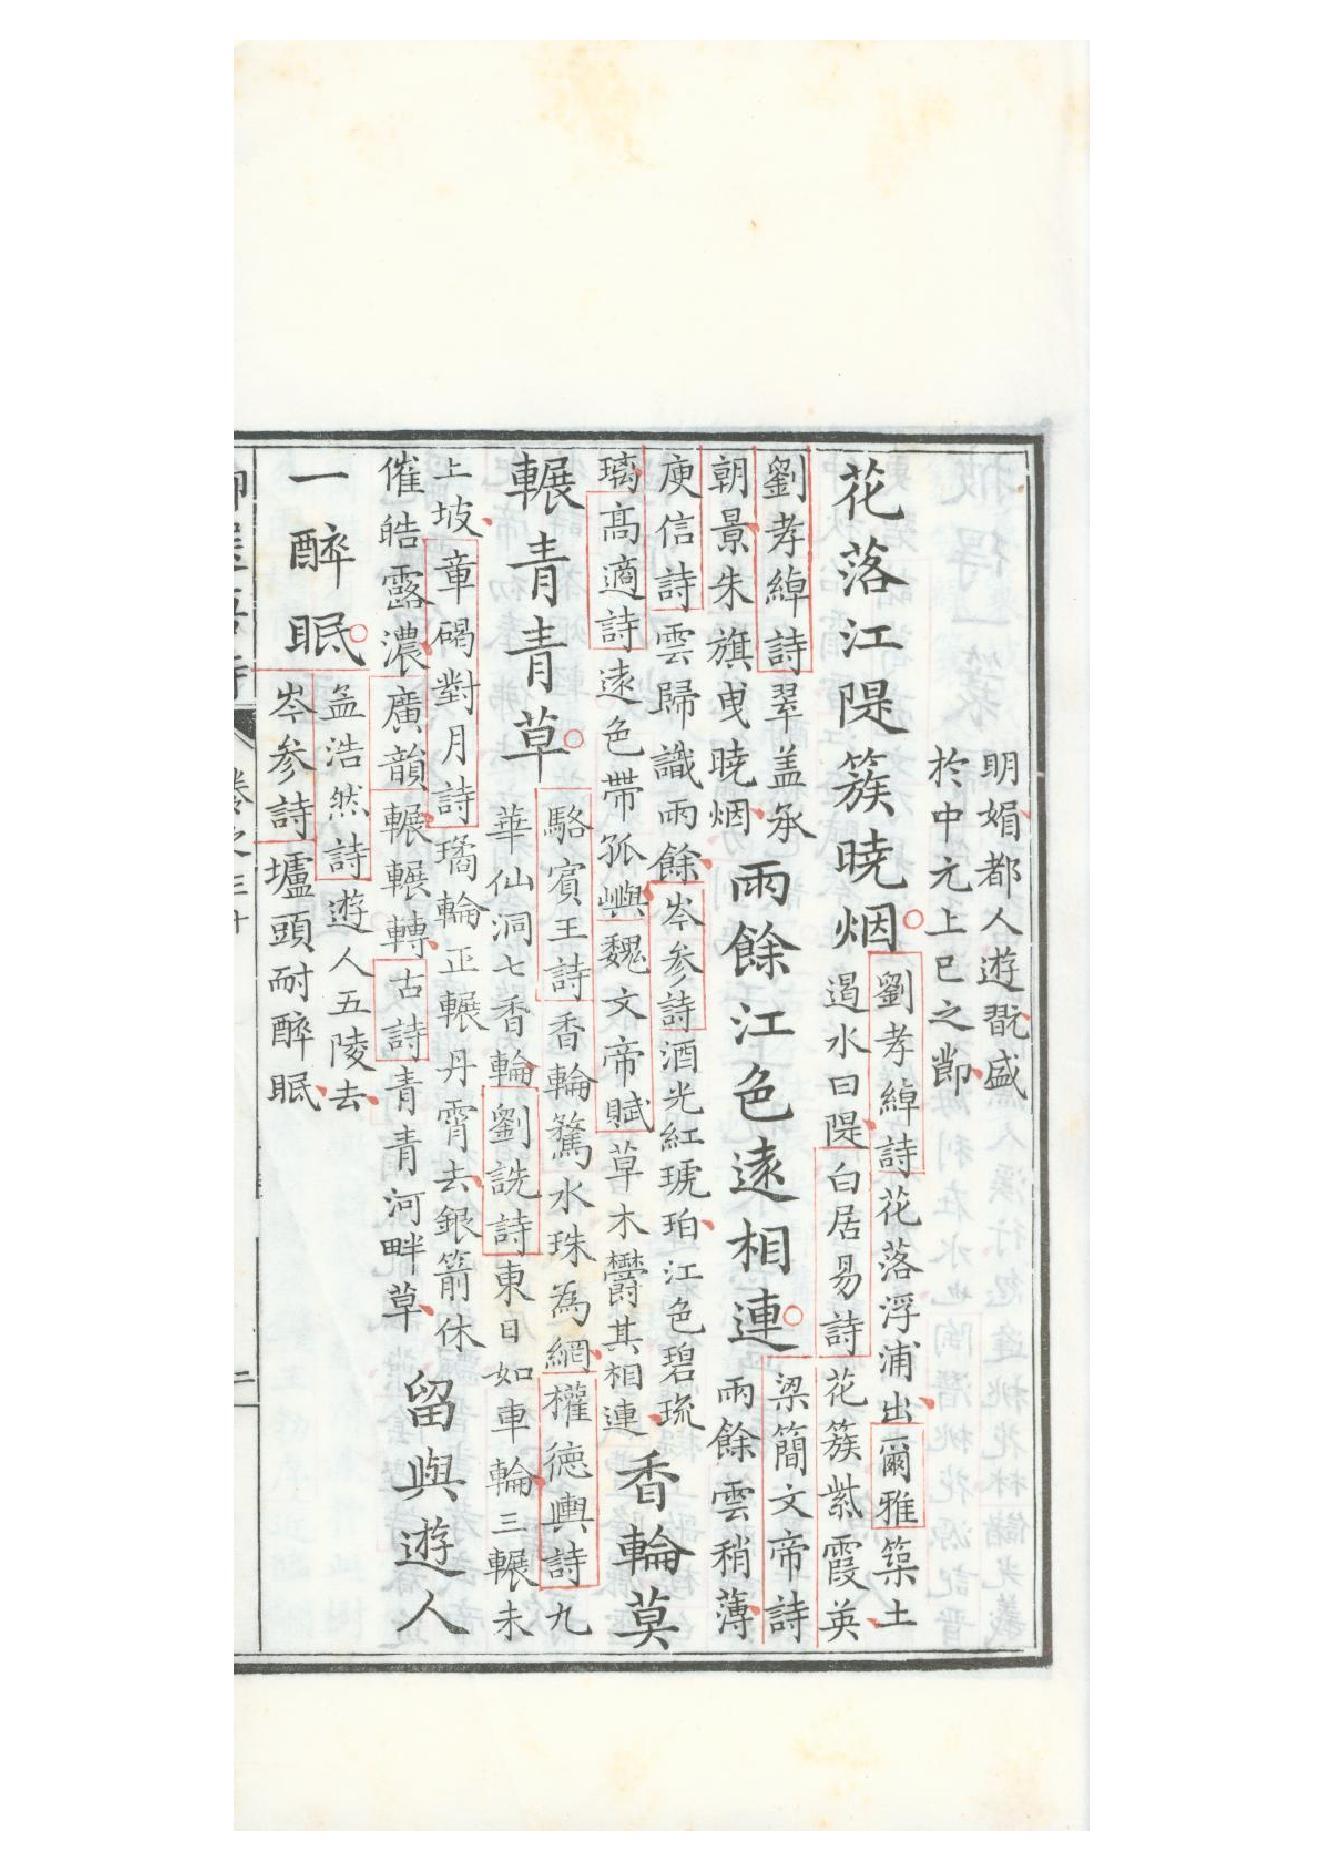 明媚都人遊翫盛
於中元上巳之節
花落江隄簇曉烟
劉孝綽詩花落浮浦出爾雅築土
遏水曰隄白居易詩花簇紫霞英
劉孝綽詩翠盖承
朝景朱旗曳曉烟
雨餘江色遠相連
梁簡文帝詩
雨餘雲稍薄
庾信詩雲歸識雨餘岑参詩酒光紅琥珀江色碧琉
璃高適詩遠色帶孤嶼魏文帝賦草木欝其相連
香輪莫
輾青青草
駱賓王詩香輪鶩水珠為網權德輿詩九
華仙洞七香輪劉詵詩東日如車輪三輾未
上坡章碣對月詩璚輪正輾丹霄去銀箭休
催皓露濃廣韻輾輾轉古詩青青河畔草
留與遊人
一醉眠
孟浩然詩遊人五陵去
岑参詩壚頭耐醉眠
卷之三十
二